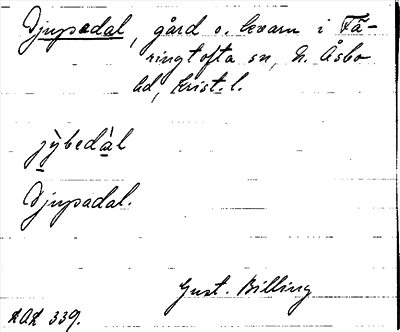 Djupadal, gård o. kvarn i Få-
ringtofta sn, N. Åsbo
hd, Krist. l.
jỳbedàl
Djupadal.
Gust. Billing
339.